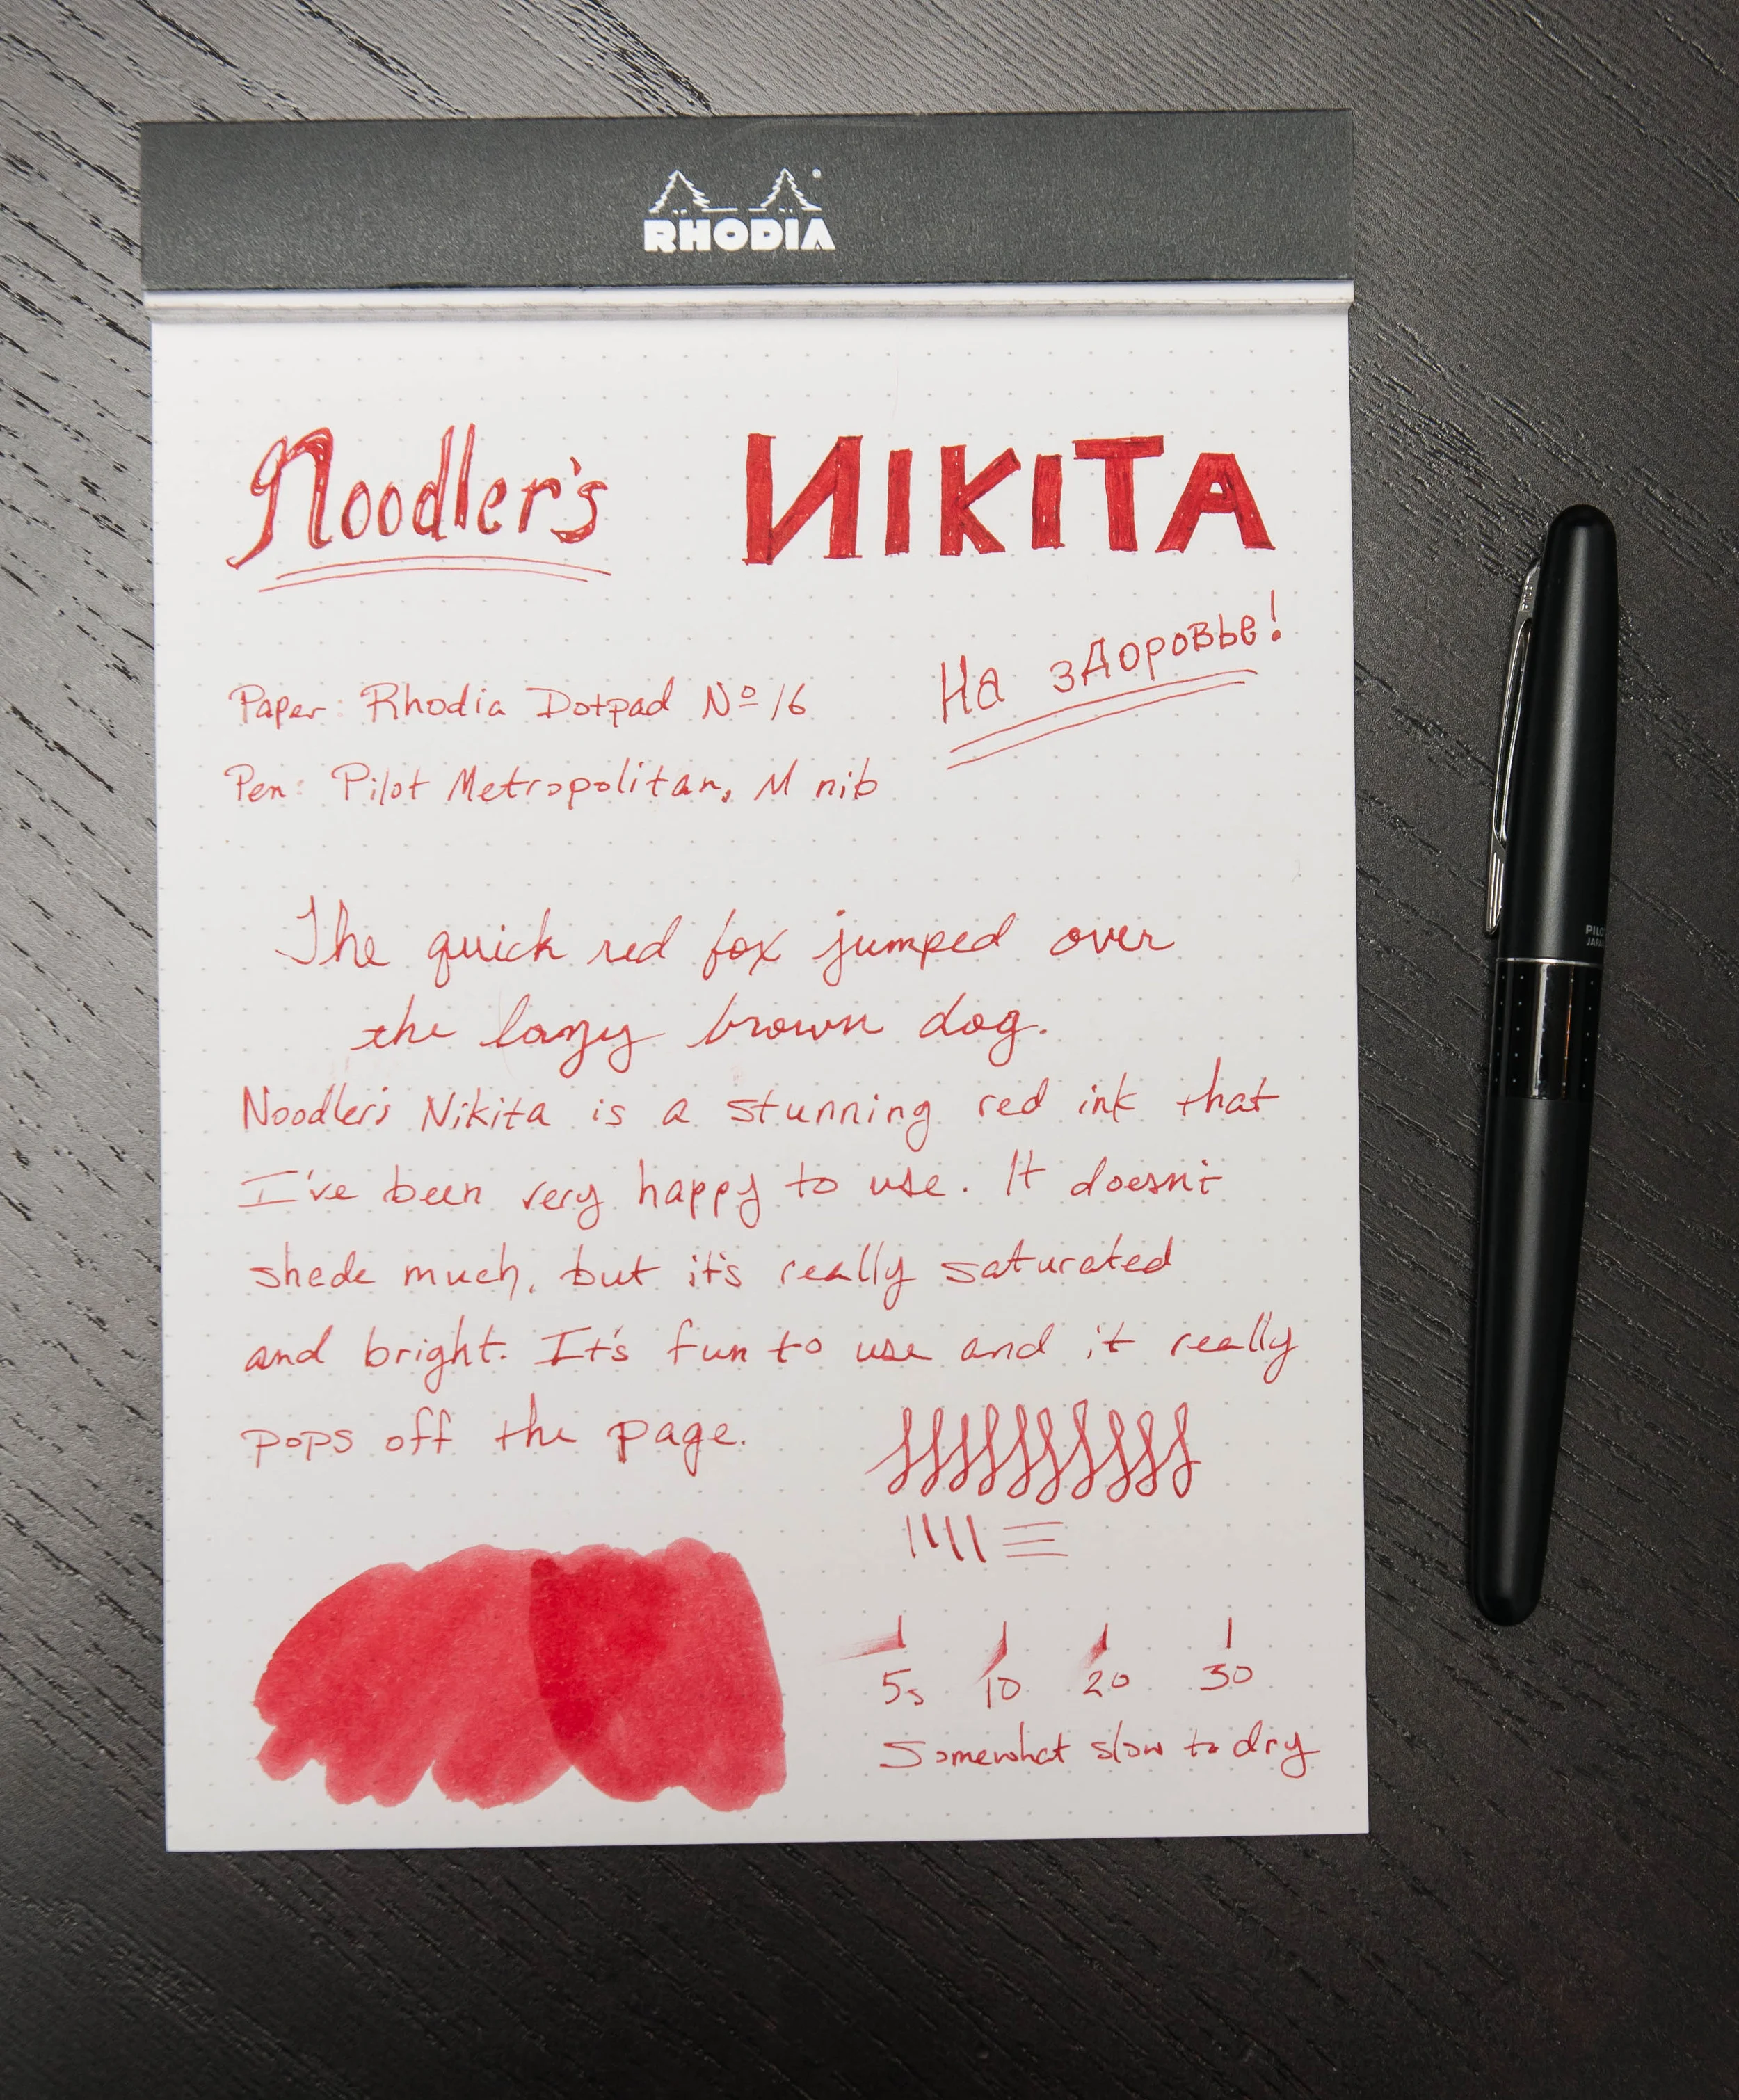 RHODIA
Noodler's ИIKITA
На здоровье!
Paper: Rhodia Dotpad Nº 16
Pen: Pilot Metropolitan, M nib
The quick red fox jumped over
the lazy brown dog.
Noodler's Nikita is a stunning red ink that
I've been very happy to use. It doesn't
shade much, but it's really saturated
and bright. It's fun to use and it really
pops off the page.
5s 10 20 30
Somewhat slow to dry